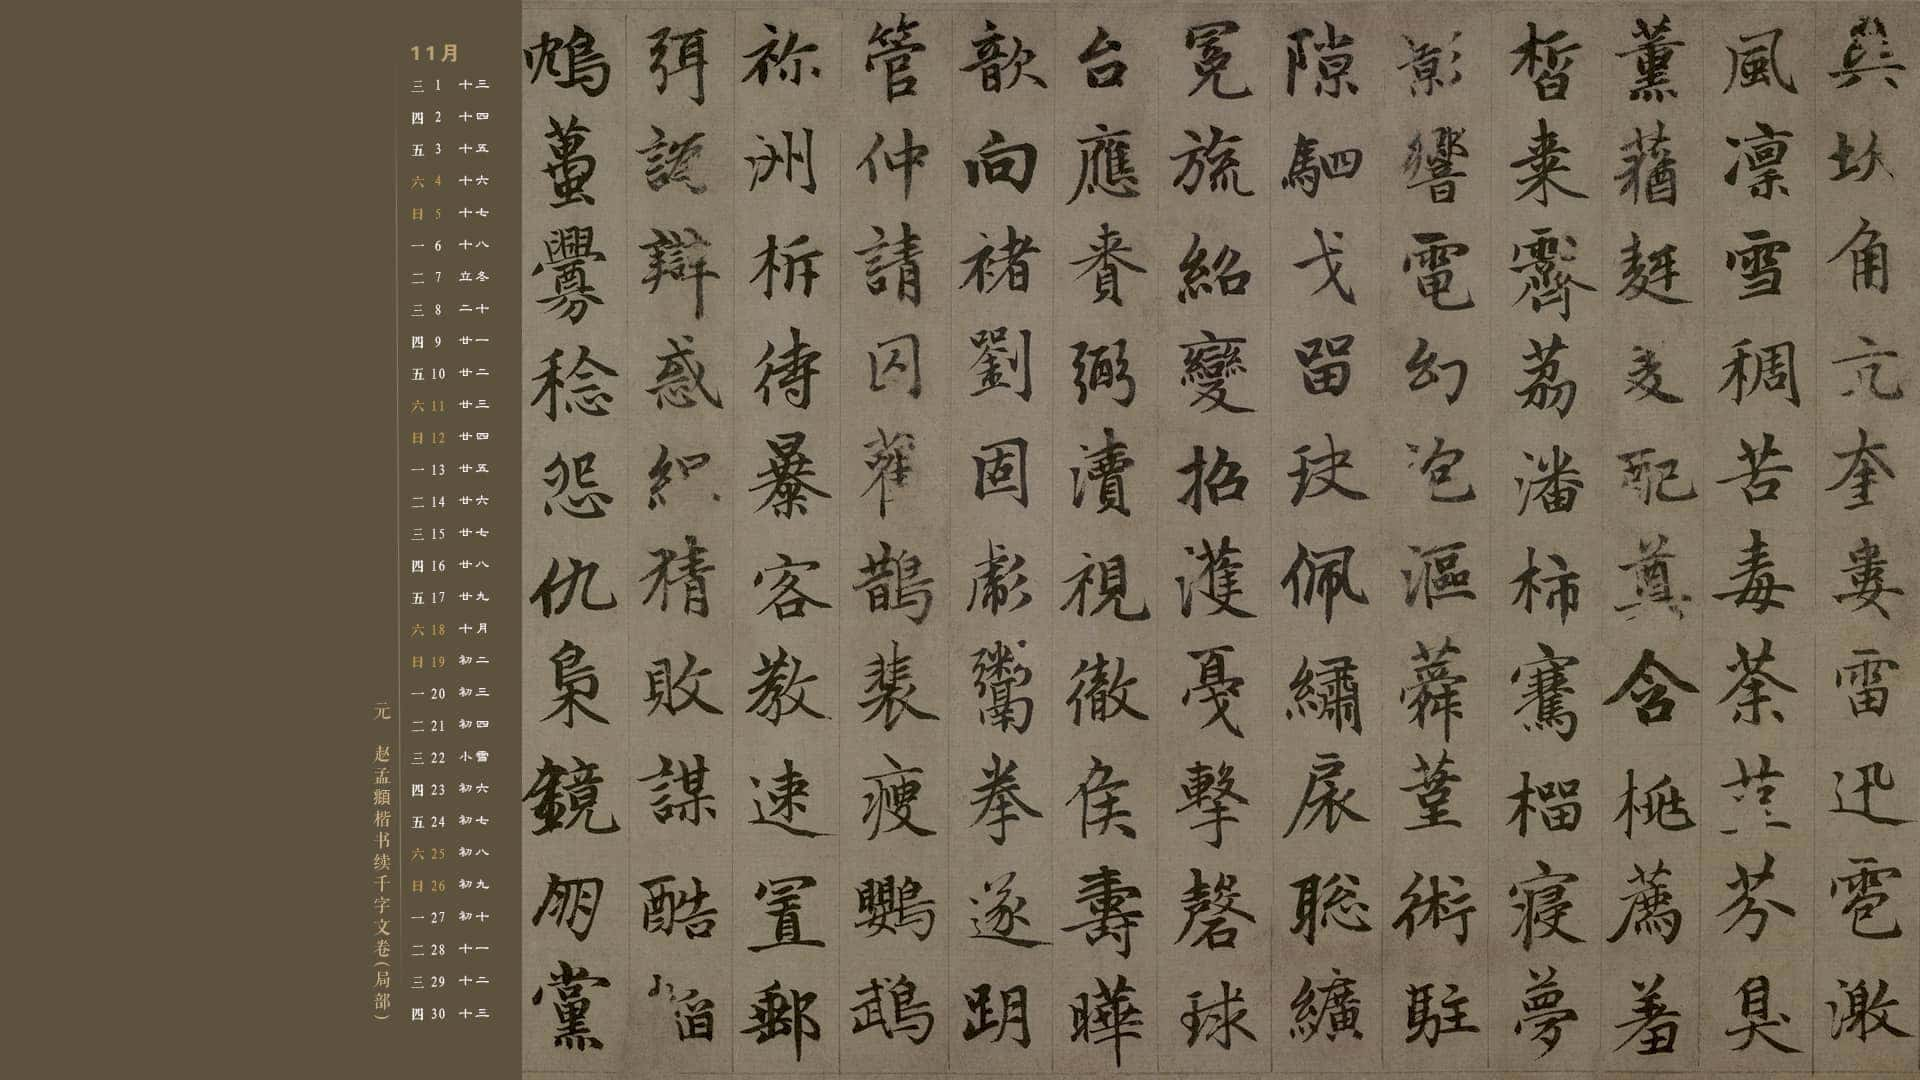 11月
三 1 十三
四 2 十四
五 3 十五
六 4 十六
日 5 十七
一 6 十八
二 7 立冬
三 8 二十
四 9 廿一
五 10 廿二
六 11 廿三
日 12 廿四
一 13 廿五
二 14 廿六
三 15 廿七
四 16 廿八
五 17 廿九
六 18 十月
日 19 初二
一 20 初三
二 21 初四
三 22 小雪
四 23 初六
五 24 初七
六 25 初八
日 26 初九
一 27 初十
二 28 十一
三 29 十二
四 30 十三
元 赵孟頫楷书续千字文卷(局部)
巽坎角亢奎婁雷迅雹激
風凛雪稠苦毒荼芬臭
薰蕕麦配含桃薦羞
皙霽荔潘柿騫榴寢夢
影響電幻泡漚蕣堇術駐
隙駟弋留玦佩繡扆聡纊
冕旒紹變招濩戞擊磬球
台應賚弼瀆視徹侯壽曄
歆向褚劉固鬻拳遂明
管仲請囚萑鵲裴瘦鸚鵡
祢洲析待暴客教速置郵
弭説辯惑織猜敗謀酷
鴆蠆釁稔怨仇梟鏡朋黨